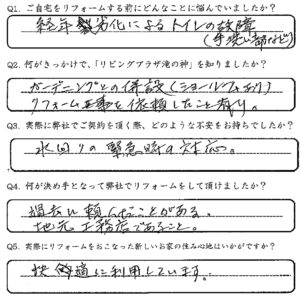 Q1. ご自宅をリフォームする前にどんなことに悩んでいましたか?
経年劣化によるトイレの故障
(手洗い部など)
Q2. 何がきっかけで、「リビングプラザ滝の神」を知りましたか?
ガーデニングとの併設(ショールームあり)
リフォーム工事を依頼したこと有り。
Q3. 実際に弊社でご契約を頂く際、どのような不安をお持ちでしたか?
水回りの緊急時の対応。
Q4. 何が決め手となって弊社でリフォームをして頂けましたか?
過去に頼んだことがある。
地元工務店であること。
Q5. 実際にリフォームをおこなった新しいお家の住み心地はいかがですか?
快適に利用しています。